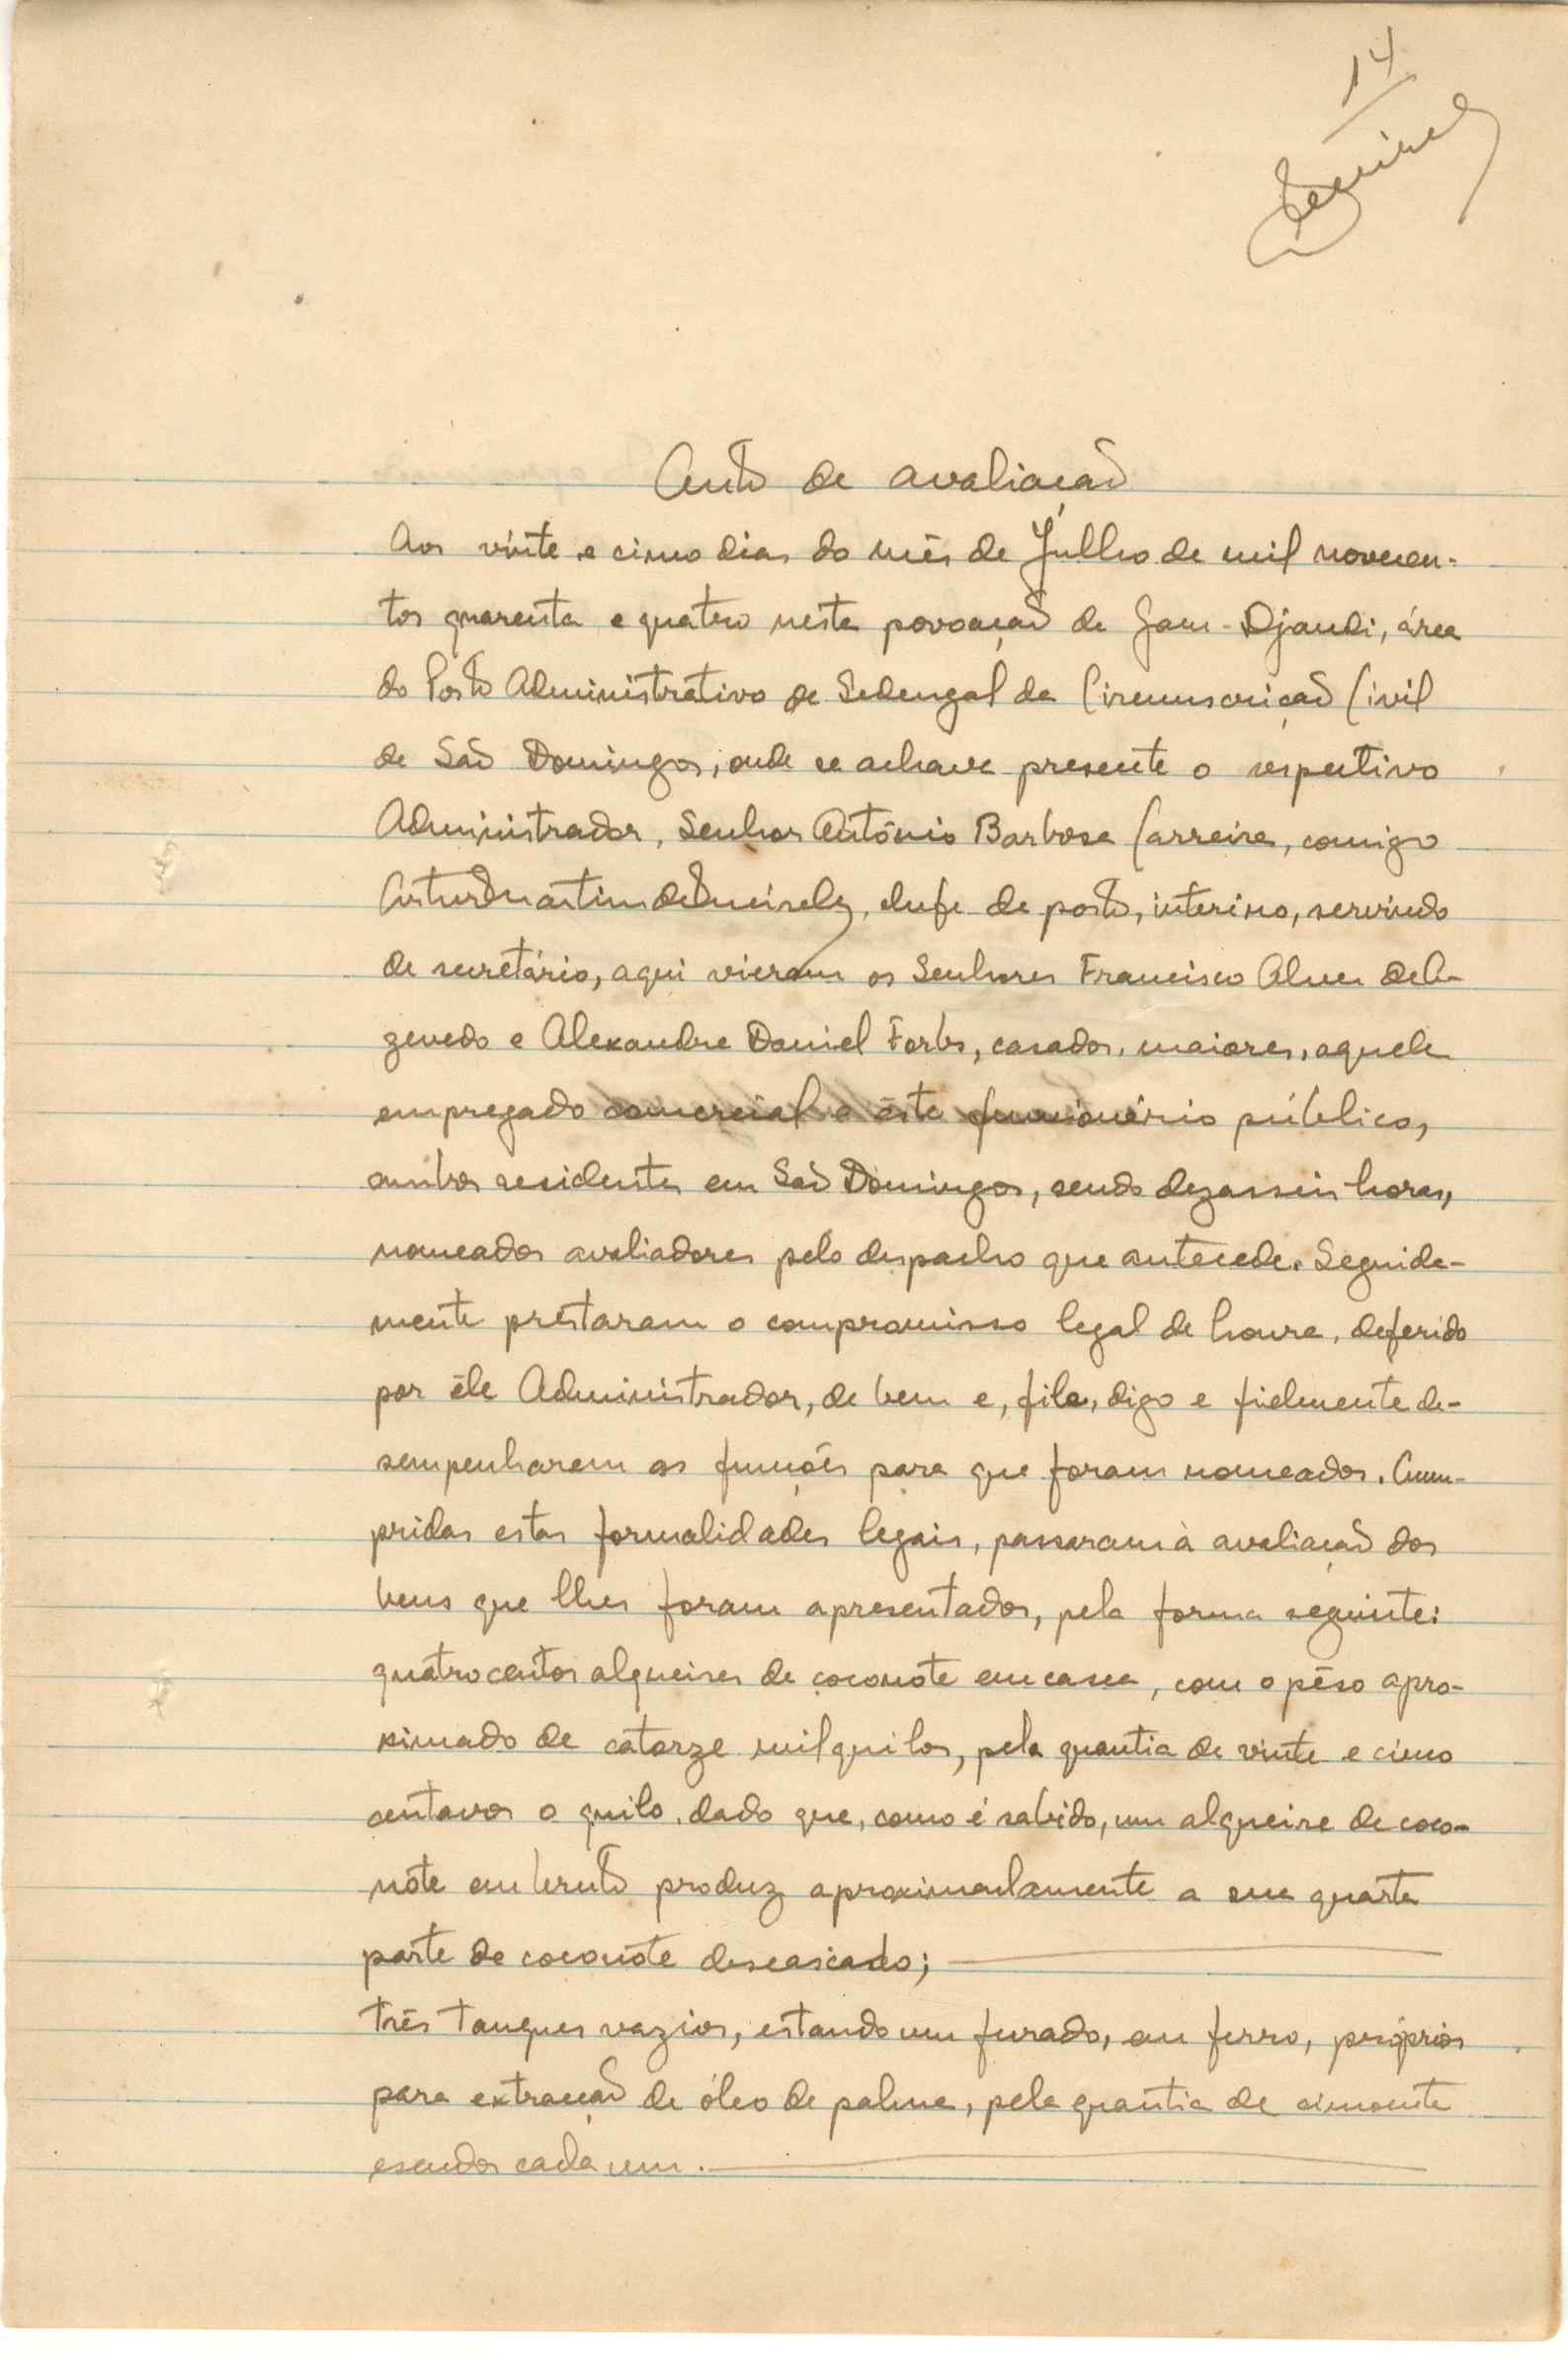 14
Auto de avaliação
Aos vinte e cinco dias do mês de Julho de mil novecen-
tos quarenta e quatro nesta povoação de Jam-Djandi, área
do Posto Administrativo de Sedengal da Circunscrição Civil
de São Domingos, onde se achava presente o respectivo
Administrador, Senhor António Barbosa Carreira, comigo
Artur Martins de Meireles, chefe de posto, interino, servindo
de secretário, aqui vieram os Senhores Francisco Alves de A-
zevedo e Alexandre Daniel Forbs, casados, maiores, aquele
empregado comercial e êste funcionário público,
ambos residentes em São Domingos, sendo dezasseis horas,
nomeados avaliadores pelo despacho que antecede. Seguida-
mente prestaram o compromisso legal de honra, deferido
por êle Administrador, de bem e, file, digo e fielmente de-
sempenharem as funções para que foram nomeados. Cum-
pridas estas formalidades legais, passaram à avaliação dos
bens que lhes foram apresentados, pela forma seguinte:
quatrocentos alqueires de coconote em casca, com o pêso apro-
ximado de catorze mil quilos, pela quantia de vinte e cinco
centavos o quilo, dado que, como é sabido, um alqueire de coco-
note em bruto produz aproximadamente a sua quarta
parte de coconote descascado;
três tanques vazios, estando um furado, em ferro, próprios
para extracção de óleo de palma, pela quantia de cincoenta
escudos cada um.